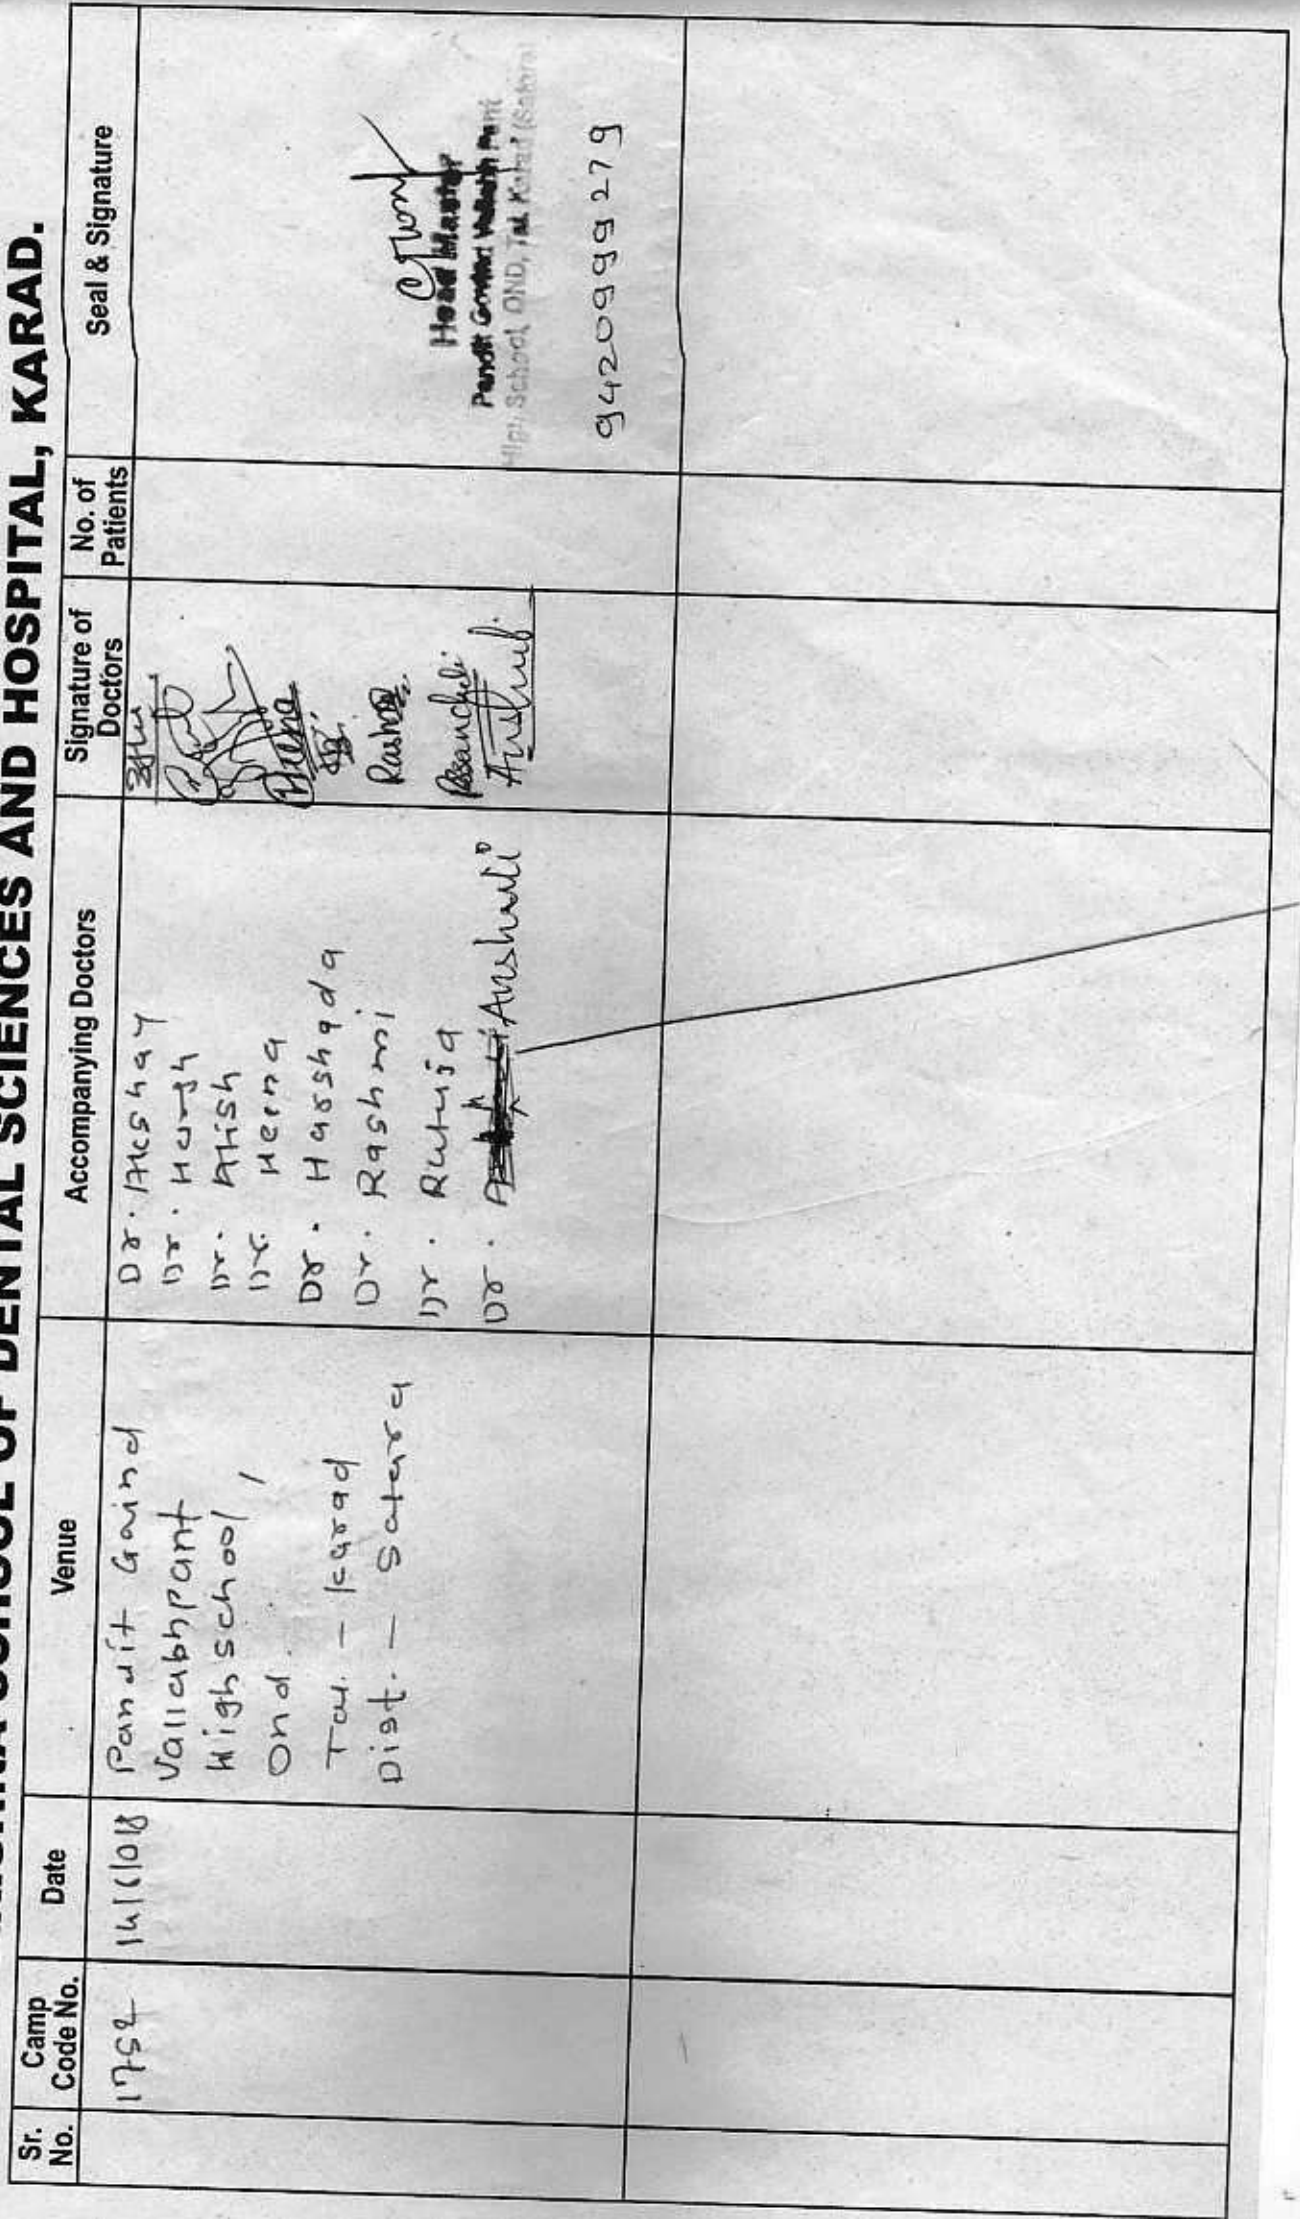 SCHOOL OF DENTAL SCIENCES AND HOSPITAL, KARAD.
Sr. No.
Camp Code No.
Date
Venue
Accompanying Doctors
Signature of Doctors
No. of Patients
Seal & Signature
1752
Pandit Gaind
Vallabhpant
Highschool,
Ond.
Tal. - Karad
Dist. - Satara
Dr. Akshay
Dr. Harsh
Dr. Atish
Dr. Heena
Dr. Harshada
Dr. Rashmi
Dr. Rutuja
Dr. Anshuli
Heena
Head Master
Pandit Govind Vallabh Pant
High School, OND, Tal. Karad (Satara)
9420999279